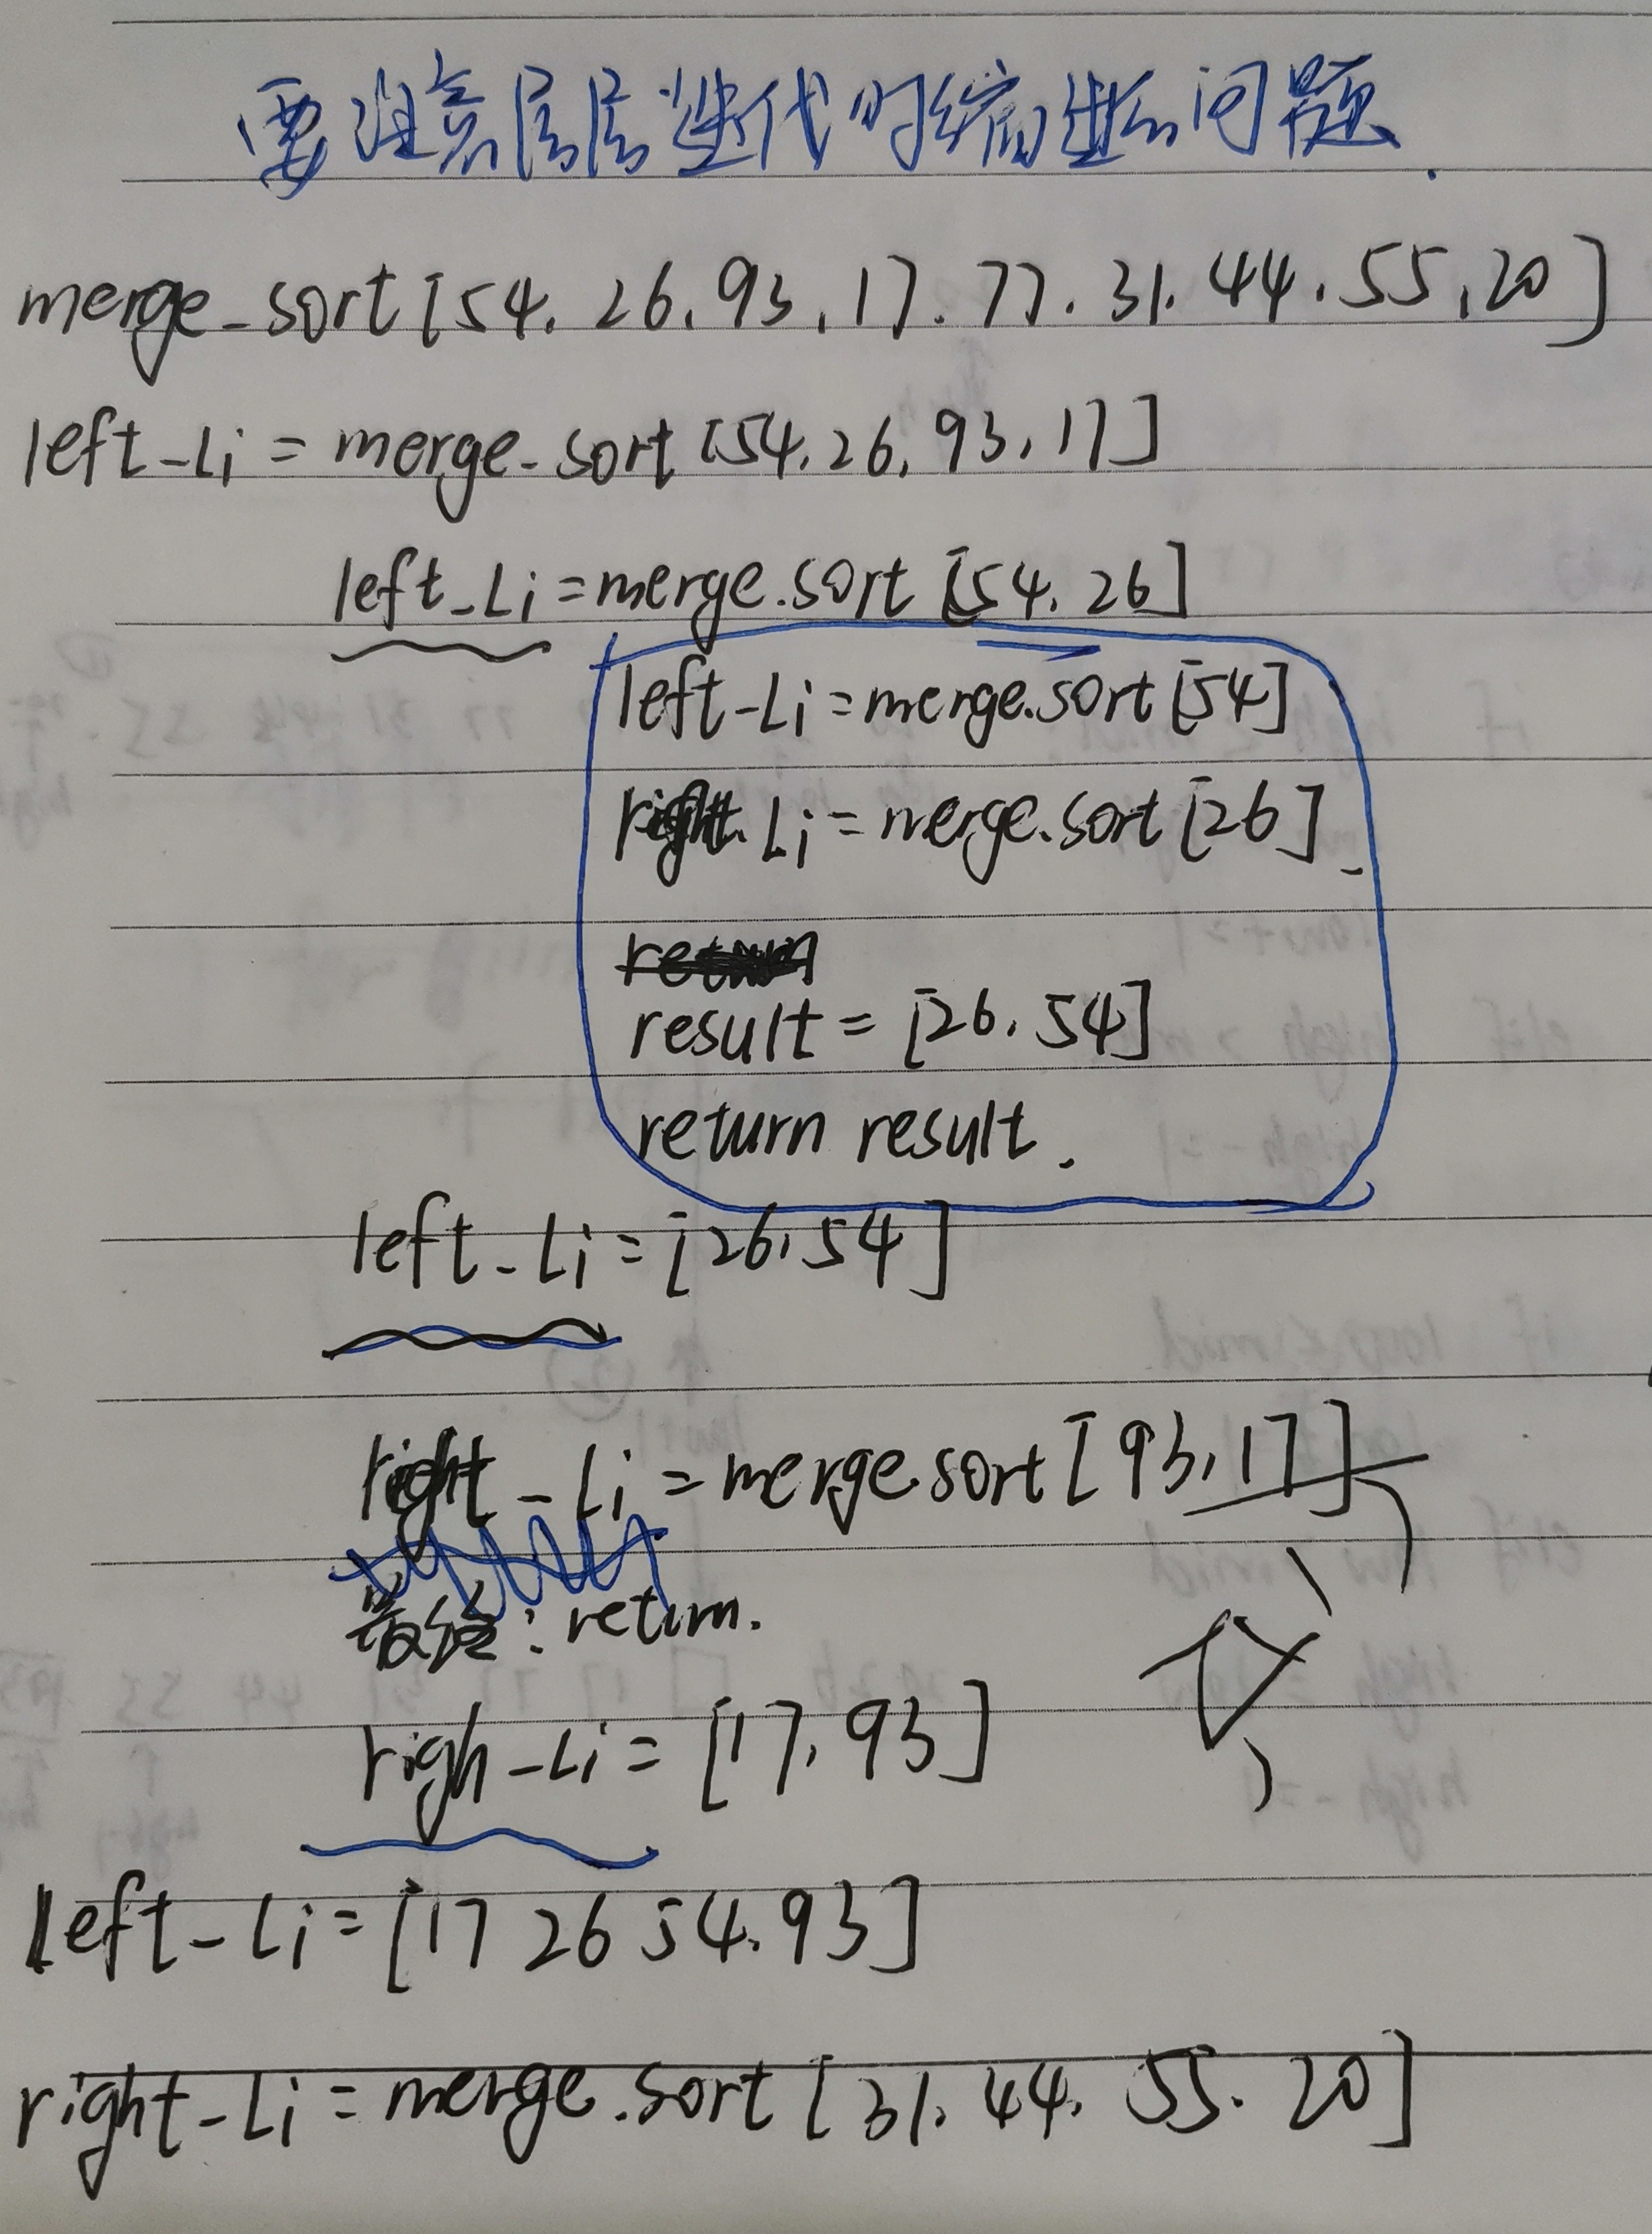 要注意层层迭代时缩进的问题.
merge-sort[54.26.93.17.77.31.44.55.20]
left-Li=merge-sort[54.26.93.17]
left-Li=merge.sort[54.26]
left-Li=merge.sort[54]
right.Li=merge.sort[26]
result=[26.54]
return result.
left-Li=[26.54]
right-Li=merge.sort[93,17]
最终:return.
righ-Li=[17.93]
left-Li=[17 26 54.93]
right-Li=merge.sort[31.44.55.20]